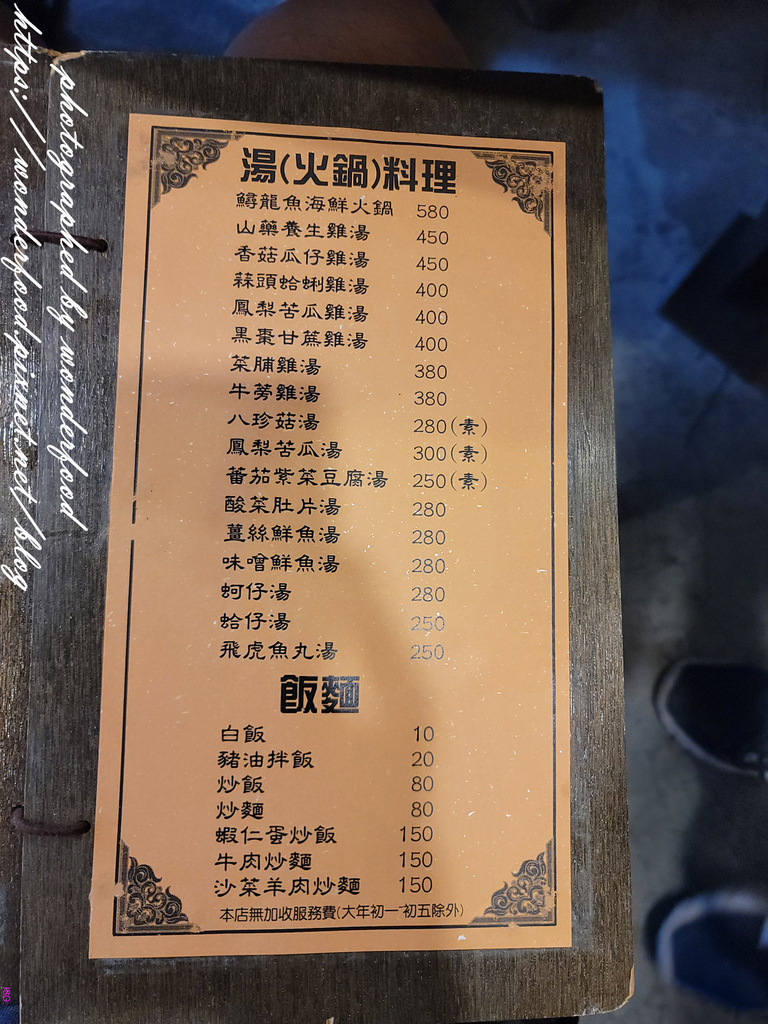 湯(火鍋)料理
鱘龍魚海鮮火鍋 580
山藥養生雞湯 450
香菇瓜仔雞湯 450
蒜頭蛤蜊雞湯 400
鳳梨苦瓜雞湯 400
黑棗甘蔗雞湯 400
菜脯雞湯 380
牛蒡雞湯 380
八珍菇湯 280(素)
鳳梨苦瓜湯 300(素)
蕃茄紫菜豆腐湯 250(素)
酸菜肚片湯 280
薑絲鮮魚湯 280
味噌鮮魚湯 280
蚵仔湯 280
蛤仔湯 250
飛虎魚丸湯 250
飯麵
白飯 10
豬油拌飯 20
炒飯 80
炒麵 80
蝦仁蛋炒飯 150
牛肉炒麵 150
沙菜羊肉炒麵 150
本店無加收服務費(大年初一~初五除外)
photographed by wonderfood
https://wonderfood.pixnet.net/blog